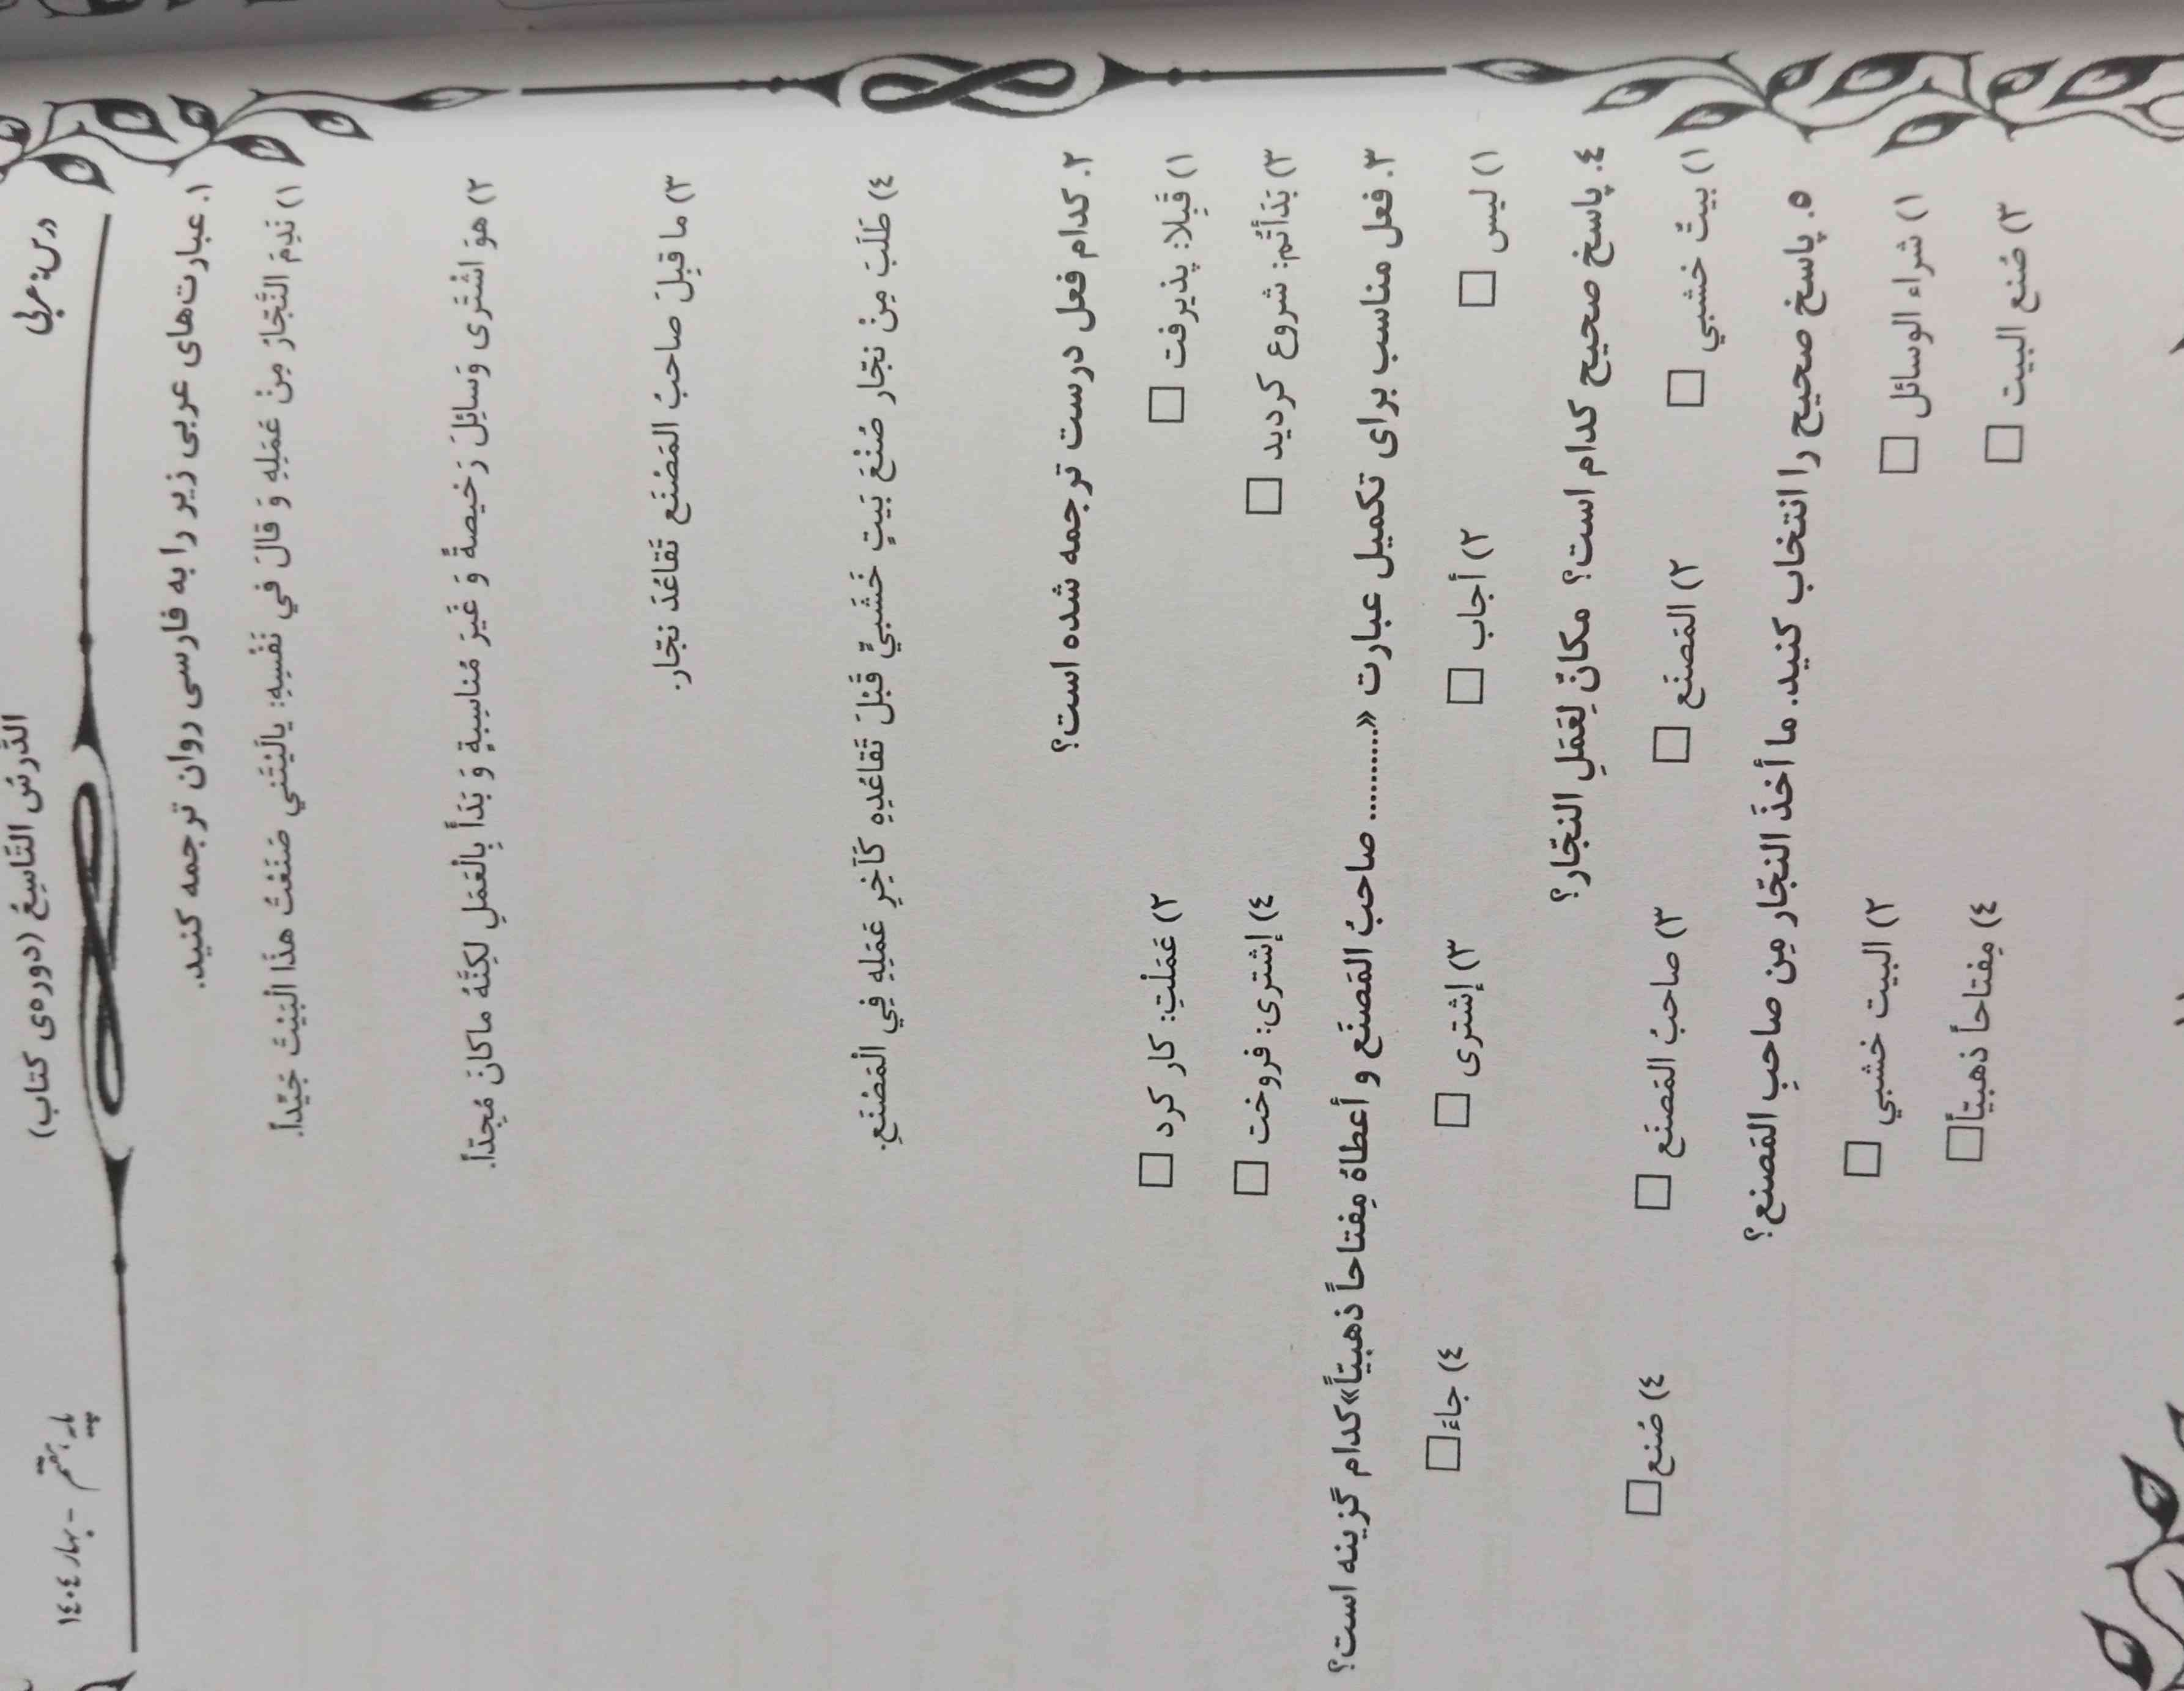 درس: عربی
الدَّرسُ التّاسِعُ (دوره‌ی کتاب)
پایه هفتم - بهار ١٤٠٤
١. عبارت‌های عربی زیر را به فارسی روان ترجمه کنید.
١) نَدِمَ النَّجّارُ مِنْ عَمَلِهِ وَ قالَ في نَفْسِهِ: يالَيْتَني صَنَعْتُ هذَا الْبَيْتَ جَيِّداً.
٢) هوَ اشْتَرى وَسائِلَ رَخيصةً وَ غَيرَ مُناسِبةٍ وَ بَدَأَ بِالْعَمَلِ لكِنَّهُ ماكانَ مُجِدّاً.
٣) ما قبِلَ صاحبُ المَصْنَع تَقاعُدَ نجّار.
٤) طَلَبَ مِنْ نجّار صُنْعَ بَيتٍ خَشَبيٍّ قَبْلَ تَقاعُدِهِ كَآخِرِ عَمَلِهِ فِي الْمَصْنَعِ.
٢. کدام فعل درست ترجمه شده است؟
١) قَبِلا: پذیرفت □ ٢) عَمَلْتِ: کار کرد □
٣) بَدَأتُم: شروع کردید □ ٤) إشتری: فروخت □
٣. فعل مناسب برای تکمیل عبارت «........... صاحبُ المَصنَع و أعطاهُ مِفتاحاً ذهبیّاً» کدام گزینه است؟
١) لیس □ ٢) أجاب □ ٣) إشتری □ ٤) جاءَ □
٤. پاسخ صحیح کدام است؟ مکانٌ لِعَمَلِ النجّار؟
١) بیتٌ خشبي □ ٢) المَصنَع □ ٣) صاحبُ المَصنَع □ ٤) صُنع □
٥. پاسخ صحیح را انتخاب کنید. ما أخذَ النجّار مِن صاحبِ المَصنع؟
١) شراء الوسائل □ ٢) البیت خشبي □
٣) صُنع البیت □ ٤) مِفتاحاً ذهبیّاً □